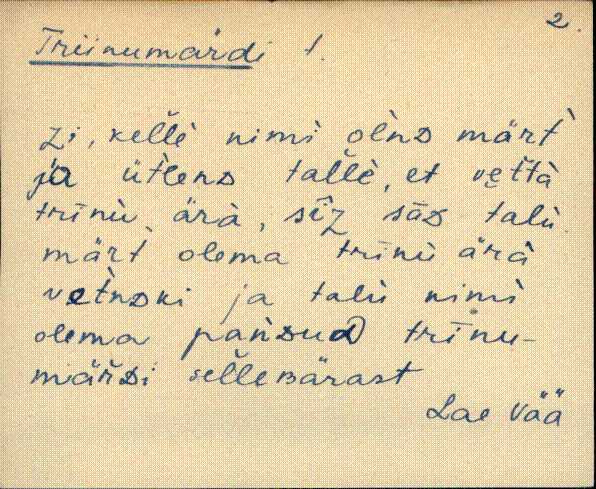 2.
Triinumärdi t.
zi, kellè nimi òlnᴅ märt̀
ja ütlenᴅ tallè, et vettà
trīnù ärà, sīz sāᴅ talù
märt̀ olema trīnù ärà
vetnᴅki ja talù nimi
olema panᴅuᴅ trīnu-
märᴅi selleʙärast
Lae Vää